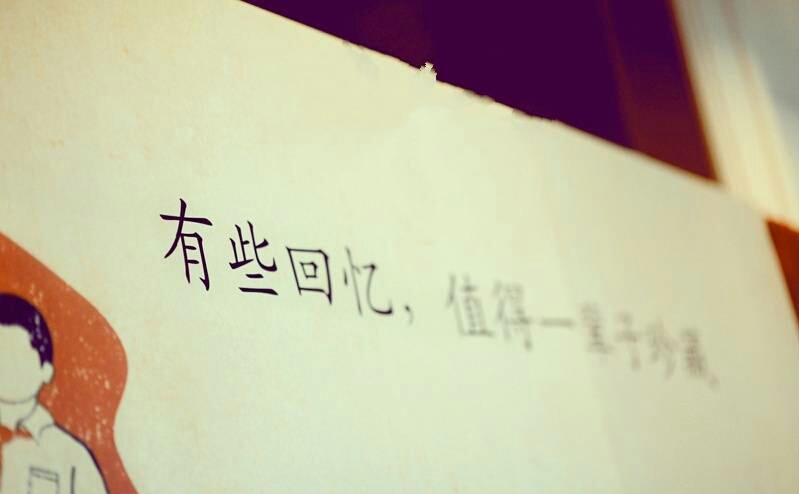 有些回忆，值得一辈子珍藏。